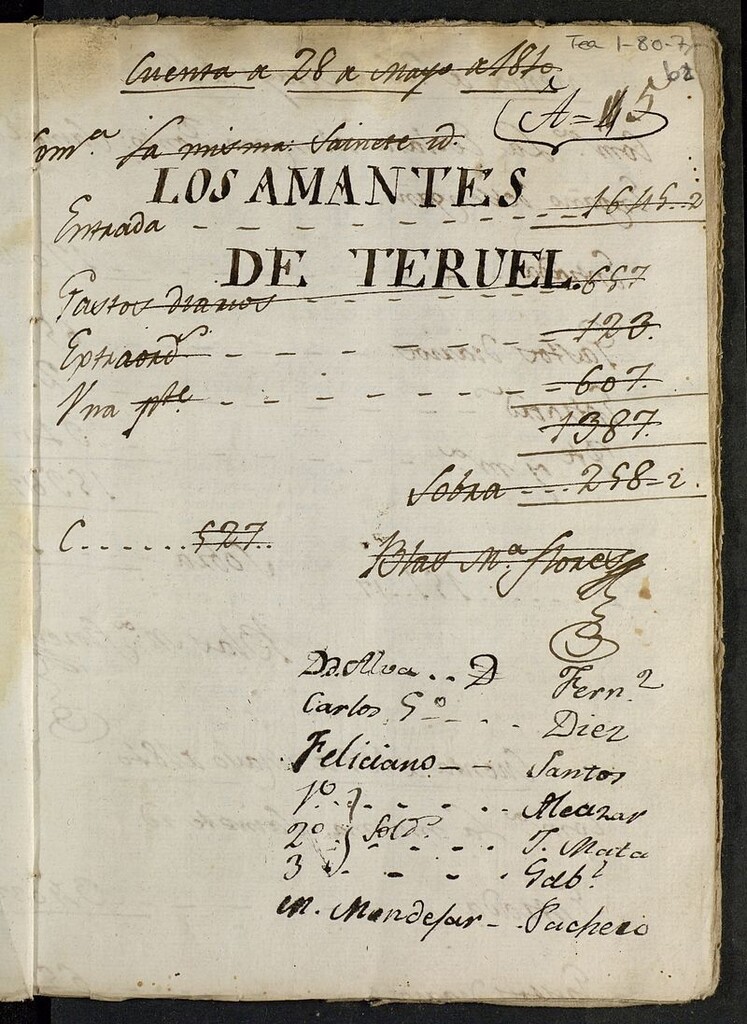 Tea 1-80-7,
62
Cuenta de 28 de Mayo de 1810
A = 5
Com.ª La misma. Sainete id.
LOS AMANTES
Entrada - - - - - - - 1645..2
DE TERUEL.
Gastos diarios - - - - - 657
Extraord.s - - - - - 123.
Una pte - - - - - - - 607.
1387.
Sobra - - . . 258=2.
C . . . . . . 527 . .
Blas M.ª Flores
D. Alva . . D Fern.z
Carlos 5º - - . . Diez
Feliciano - - Santos
1.º - . - . . Alcazar
2º Sold.s - - - T. Mata
3 - - - - Gab.l
M. Mondejar - . Pacheco